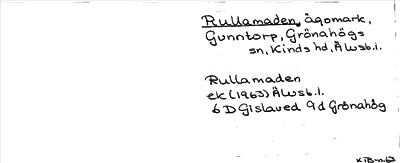 Rullamaden, ågomark,
Gunntorp, Grönahögs
sn, Kinds hd, Älvsb.l.
Rullamaden
ek (1963) Älvsb.l.
6D Gislaved 9d Grönahög